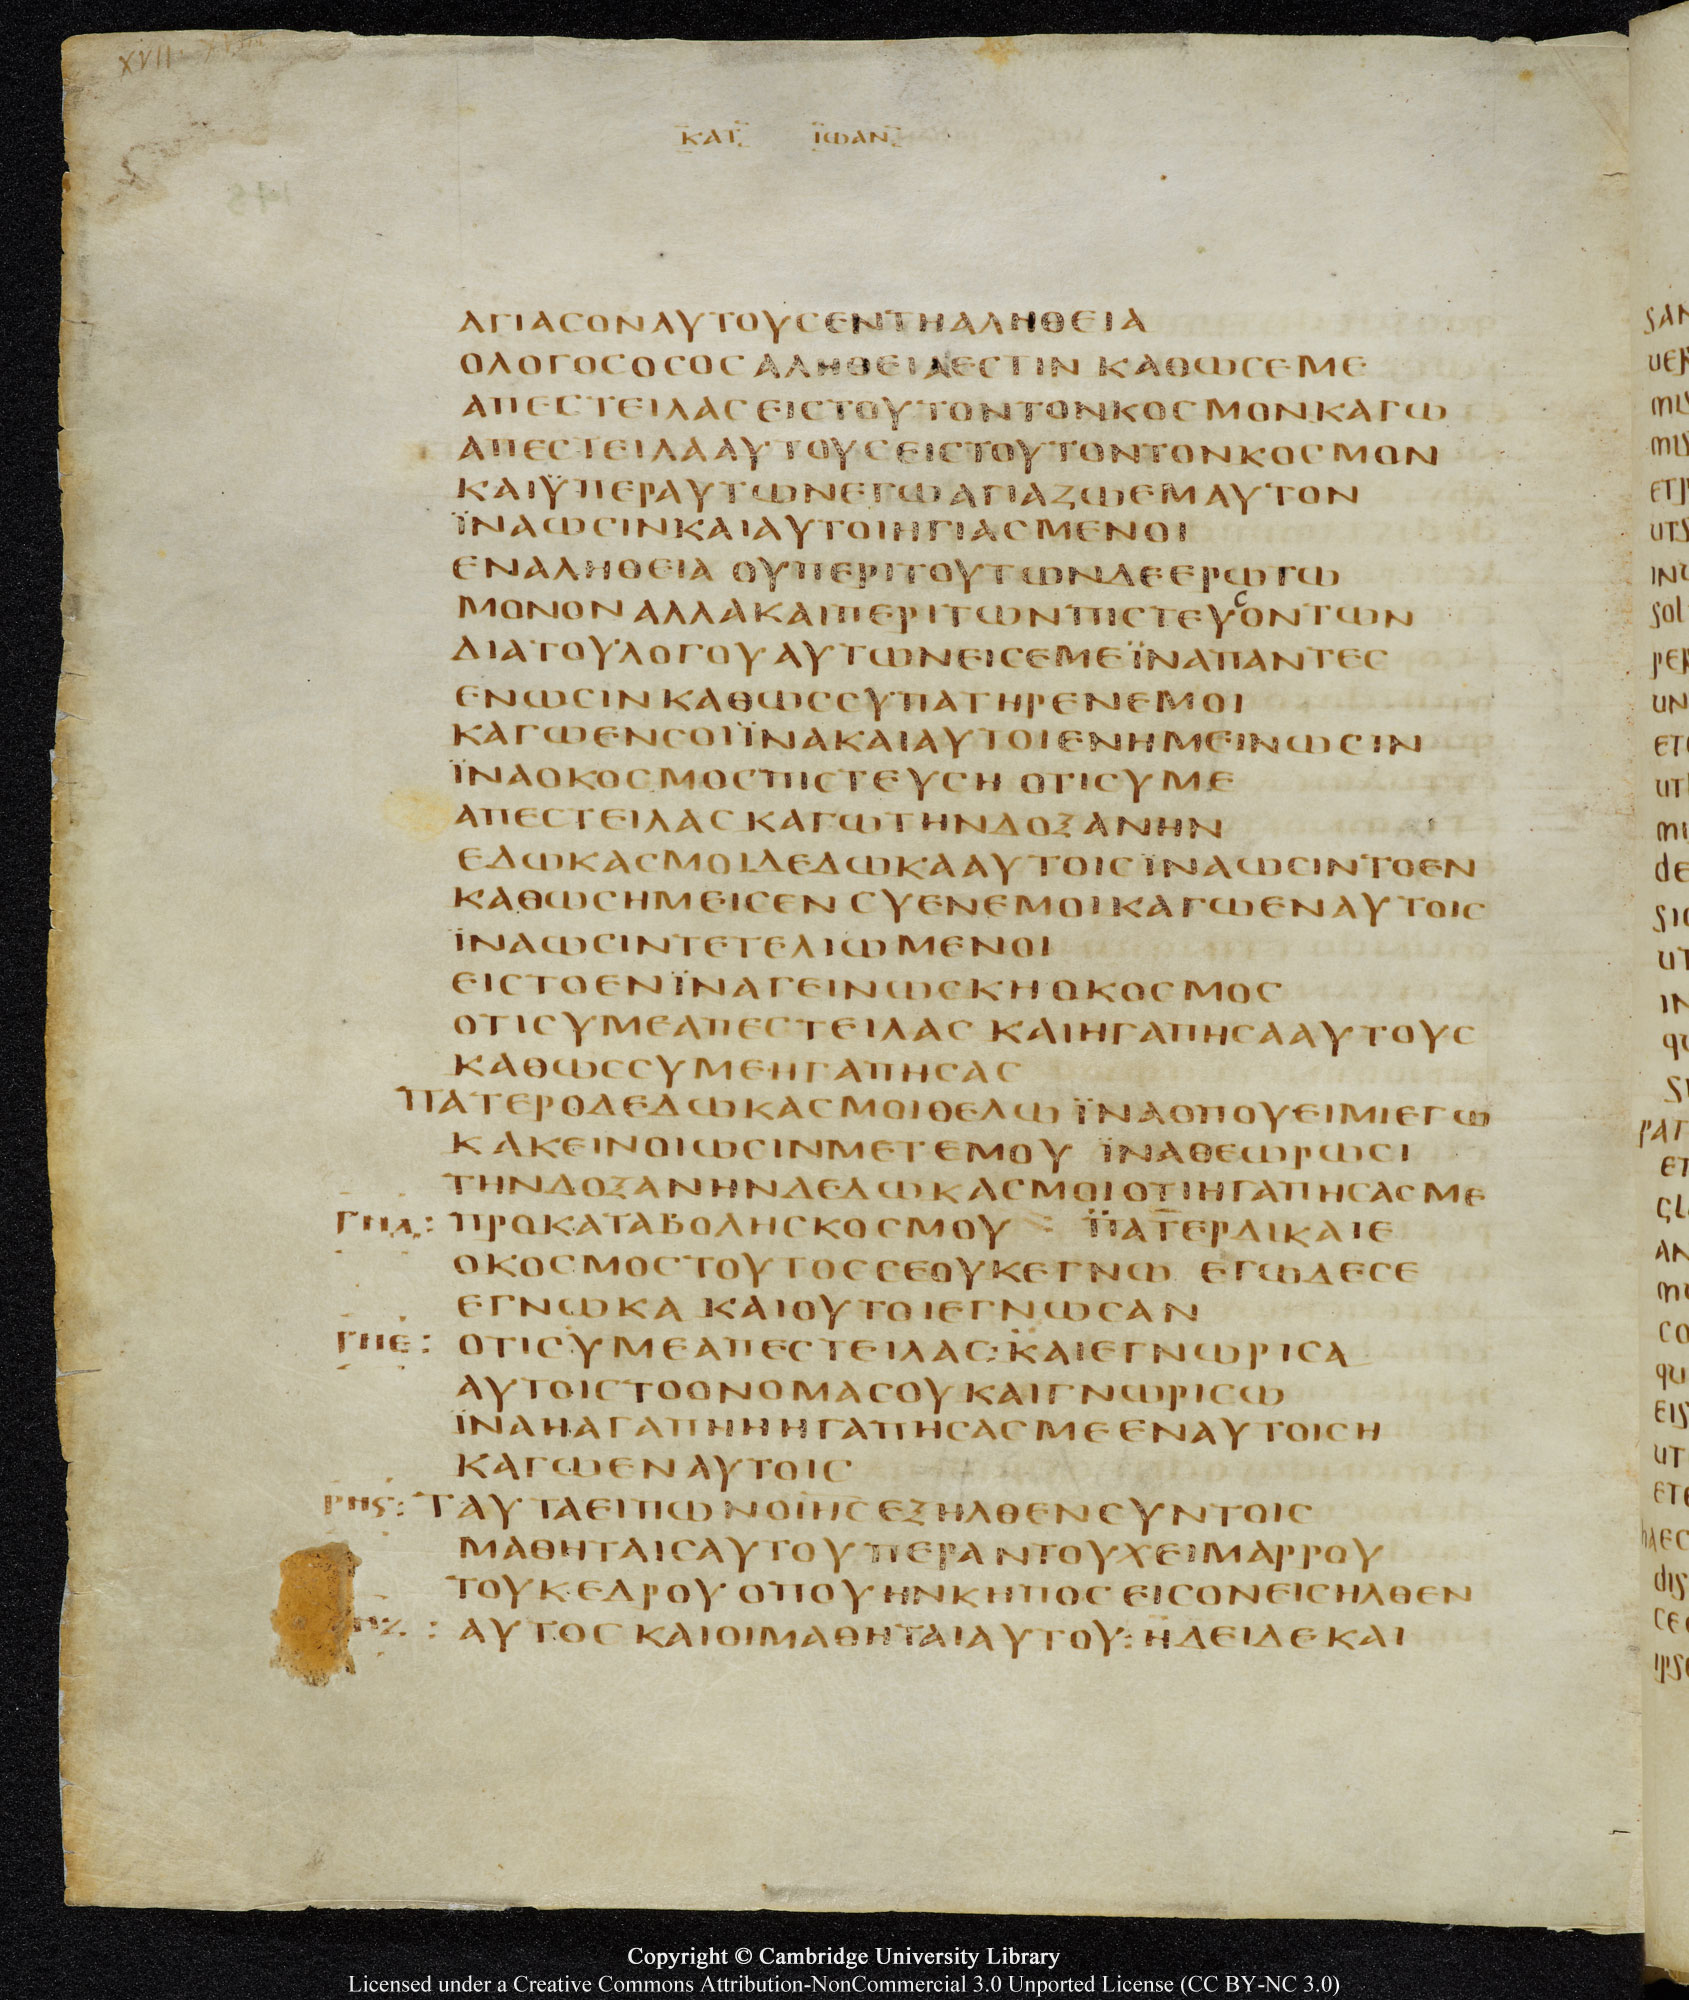 XVII
ΚΑΤ ΪΩΑΝ
ΑΓΙΑСΟΝΑΥΤΟΥСΕΝΤΗΑΛΗΘΕΙΑ
ΟΛΟΓΟСΟСΟС ΑΛΗΘΕΙΑΕСΤΙΝ ΚΑΘΩСΕΜΕ
ΑΠΕСΤΕΙΛΑС ΕΙСΤΟΥΤΟΝΤΟΝΚΟСΜΟΝΚΑΓΩ
ΑΠΕСΤΕΙΛΑΑΥΤΟΥСΕΙСΤΟΥΤΟΝΤΟΝΚΟСΜΟΝ
ΚΑΙΫΠΕΡΑΥΤΩΝΕΓΩΑΓΙΑΖΩΕΜΑΥΤΟΝ
ΪΝΑΩСΙΝΚΑΙΑΥΤΟΙΗΓΙΑСΜΕΝΟΙ
ΕΝΑΛΗΘΕΙΑ ΟΥΠΕΡΙΤΟΥΤΩΝΔΕΕΡΩΤΩ
ΜΟΝΟΝΑΛΛΑΚΑΙΠΕΡΙΤΩΝΠΙСΤΕΥСΟΝΤΩΝ
ΔΙΑΤΟΥΛΟΓΟΥΑΥΤΩΝΕΙСΕΜΕΪΝΑΠΑΝΤΕС
ΕΝΩСΙΝΚΑΘΩССΥΠΑΤΗΡΕΝΕΜΟΙ
ΚΑΓΩΕΝСΟΙΪΝΑΚΑΙΑΥΤΟΙΕΝΗΜΕΙΝΩСΙΝ
ΪΝΑΟΚΟСΜΟСΠΙСΤΕΥСΗ ΟΤΙСΥΜΕ
ΑΠΕСΤΕΙΛΑС ΚΑΓΩΤΗΝΔΟΞΑΝΗΝ
ΕΔΩΚΑСΜΟΙΔΕΔΩΚΑΑΥΤΟΙСΪΝΑΩСΙΝΤΟΕΝ
ΚΑΘΩСΗΜΕΙСΕΝ СΥΕΝΕΜΟΙΚΑΓΩΕΝΑΥΤΟΙС
ΪΝΑΩСΙΝΤΕΤΕΛΙΩΜΕΝΟΙ
ΕΙСΤΟΕΝΪΝΑΓΕΙΝΩСΚΗΟΚΟСΜΟС
ΟΤΙСΥΜΕΑΠΕСΤΕΙΛΑС ΚΑΙΗΓΑΠΗСΑΑΥΤΟΥС
ΚΑΘΩССΥΜΕΗΓΑΠΗСΑС
ΠΑΤΕΡΟΔΕΔΩΚΑСΜΟΙΘΕΛΩ ΪΝΑΟΠΟΥΕΙΜΙΕΓΩ
ΚΑΚΕΙΝΟΙΩСΙΝΜΕΤΕΜΟΥ ΪΝΑΘΕΩΡΩСΙ
ΤΗΝΔΟΞΑΝΗΝΔΕΔΩΚΑСΜΟΙΟΤΙΗΓΑΠΗСΑСΜΕ
ΓΠΔ: ΠΡΟΚΑΤΑΒΟΛΗСΚΟСΜΟΥ : ΠΑΤΕΡΔΙΚΑΙΕ
ΟΚΟСΜΟСΤΟΥΤΟССΕΟΥΚΕΓΝΩ ΕΓΩΔΕСΕ
ΕΓΝΩΚΑ ΚΑΙΟΥΤΟΙΕΓΝΩСΑΝ
ΓΠΕ: ΟΤΙСΥΜΕΑΠΕСΤΕΙΛΑС:ΚΑΙΕΓΝΩΡΙСΑ
ΑΥΤΟΙСΤΟΟΝΟΜΑСΟΥΚΑΙΓΝΩΡΙСΩ
ΪΝΑΗΑΓΑΠΗΗΗΓΑΠΗСΑСΜΕΕΝΑΥΤΟΙСΗ
ΚΑΓΩΕΝΑΥΤΟΙС
ΡΗϚ: ΤΑΥΤΑΕΙΠΩΝΟΙΗСΕΞΗΛΘΕΝСΥΝΤΟΙС
ΜΑΘΗΤΑΙСΑΥΤΟΥΠΕΡΑΝΤΟΥΧΕΙΜΑΡΡΟΥ
ΤΟΥΚΕΔΡΟΥ ΟΠΟΥΗΝΚΗΠΟС ΕΙСΟΝΕΙСΗΛΘΕΝ
ΠΖ : ΑΥΤΟС ΚΑΙΟΙΜΑΘΗΤΑΙΑΥΤΟΥ:ΗΔΕΙΔΕΚΑΙ
Copyright © Cambridge University Library
Licensed under a Creative Commons Attribution-NonCommercial 3.0 Unported License (CC BY-NC 3.0)